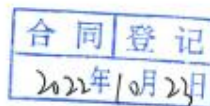 合同登记
2022年10月23日